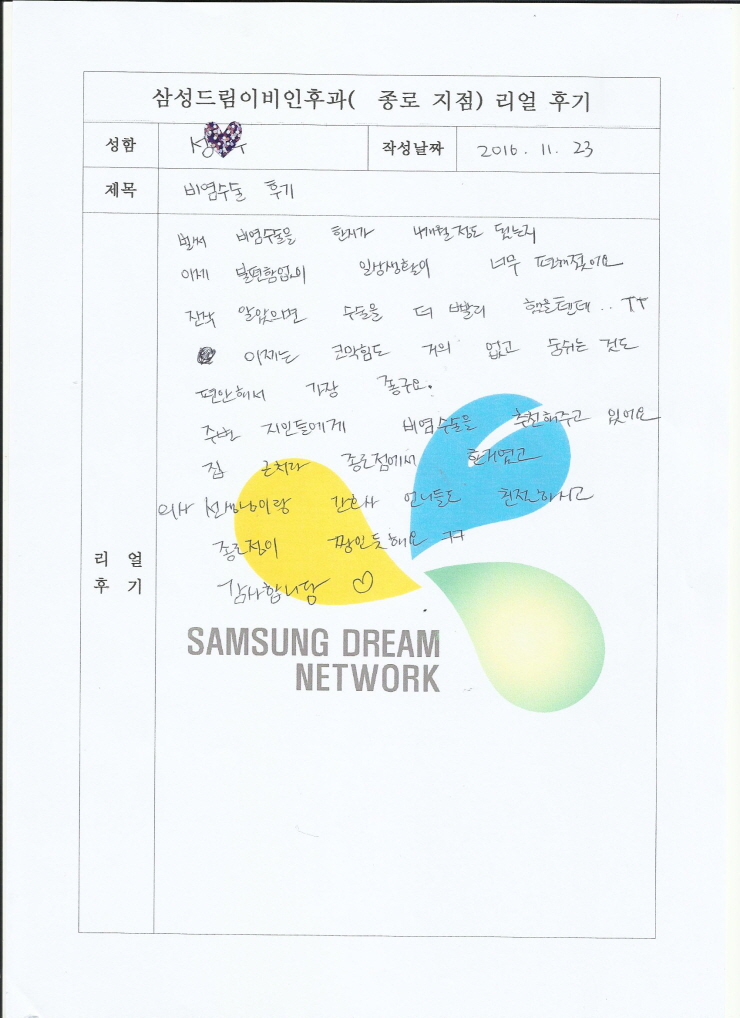 삼성드림이비인후과( 종로 지점) 리얼 후기
성함
작성날짜 2016. 11. 23
제목 비염수술 후기
벌써 비염수술을 한지가 4개월정도 됬는데
이제 불편함없이 일상생활이 너무 편해졌어요
진작 알았으면 수술을 더 빨리 했을텐데.. ㅜㅜ
이제는 코막힘도 거의 없고 숨쉬는 것도
편안해서 가장 좋구요.
주변 지인들에게 비염수술을 추천해주고 있어요
집 근처라 종로점에서 한거였고
의사 선생님이랑 간호사 언니들도 친절하시고
종로점이 짱인듯해요 ㅋㅋ
감사합니당 ♡
리얼
후기
SAMSUNG DREAM
NETWORK